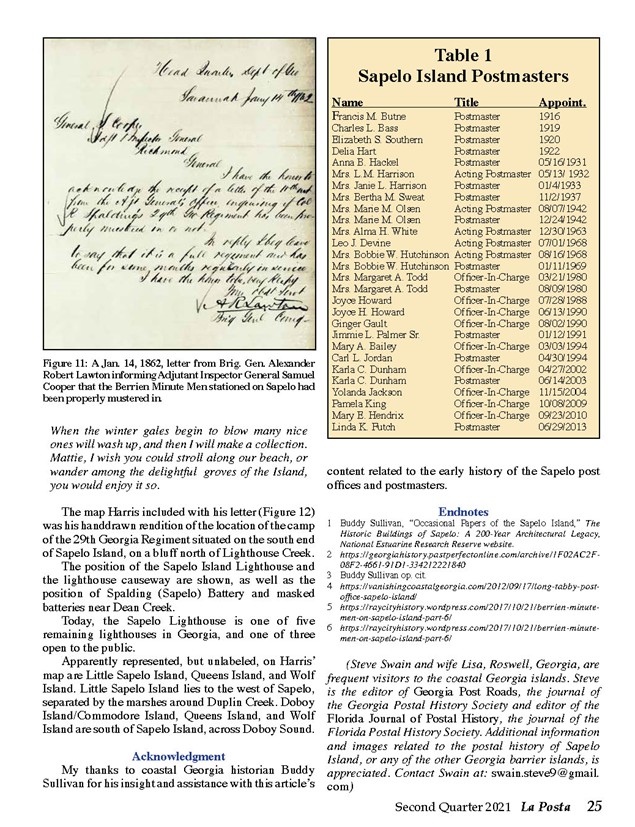 Head Quarters Dept of Geo
Savannah Jany 14th 1862
General S Cooper
Adjt & Inspector General
Richmond
General
I have the honor to
acknowledge the receipt of a letter of the
from the Adjt General's office enquiring if Col
Spalding's 29th Geo Regiment has been pro-
perly mustered in or not.
In reply I beg leave
to say that it is a full regiment and has
been for some months regularly in service
I have the honor to be, very Respy
Your Obdt Servt
A R Lawton
Brig Genl Comg
Figure 11: A Jan. 14, 1862, letter from Brig. Gen. Alexander
Robert Lawton informing Adjutant Inspector General Samuel
Cooper that the Berrien Minute Men stationed on Sapelo had
been properly mustered in.
When the winter gales begin to blow many nice
ones will wash up, and then I will make a collection.
Mattie, I wish you could stroll along our beach, or
wander among the delightful groves of the Island,
you would enjoy it so.
The map Harris included with his letter (Figure 12)
was his handdrawn rendition of the location of the camp
of the 29th Georgia Regiment situated on the south end
of Sapelo Island, on a bluff north of Lighthouse Creek.
The position of the Sapelo Island Lighthouse and
the lighthouse causeway are shown, as well as the
position of Spalding (Sapelo) Battery and masked
batteries near Dean Creek.
Today, the Sapelo Lighthouse is one of five
remaining lighthouses in Georgia, and one of three
open to the public.
Apparently represented, but unlabeled, on Harris'
map are Little Sapelo Island, Queens Island, and Wolf
Island. Little Sapelo Island lies to the west of Sapelo,
separated by the marshes around Duplin Creek. Doboy
Island/Commodore Island, Queens Island, and Wolf
Island are south of Sapelo Island, across Doboy Sound.
Acknowledgment
My thanks to coastal Georgia historian Buddy
Sullivan for his insight and assistance with this article's
Table 1
Sapelo Island Postmasters
Name Title Appoint.
Francis M. Butne Postmaster 1916
Charles L. Bass Postmaster 1919
Elizabeth S. Southern Postmaster 1920
Delia Hart Postmaster 1922
Anna B. Hackel Postmaster 05/16/1931
Mrs. L.M. Harrison Acting Postmaster 05/13/ 1932
Mrs. Janie L. Harrison Postmaster 01/4/1933
Mrs. Bertha M. Sweat Postmaster 11/2/1937
Mrs. Marie M. Olsen Acting Postmaster 08/07/1942
Mrs. Marie M. Olsen Postmaster 12/24/1942
Mrs. Alma H. White Acting Postmaster 12/30/1963
Leo J. Devine Acting Postmaster 07/01/1968
Mrs. Bobbie W. Hutchinson Acting Postmaster 08/16/1968
Mrs. Bobbie W. Hutchinson Postmaster 01/11/1969
Mrs. Margaret A. Todd Officer-In-Charge 03/21/1980
Mrs. Margaret A. Todd Postmaster 08/09/1980
Joyce Howard Officer-In-Charge 07/28/1988
Joyce H. Howard Officer-In-Charge 06/13/1990
Ginger Gault Officer-In-Charge 08/02/1990
Jimmie L. Palmer Sr. Postmaster 01/12/1991
Mary A. Bailey Officer-In-Charge 03/03/1994
Carl L. Jordan Postmaster 04/30/1994
Karla C. Dunham Officer-In-Charge 04/27/2002
Karla C. Dunham Postmaster 06/14/2003
Yolanda Jackson Officer-In-Charge 11/15/2004
Pamela King Officer-In-Charge 10/08/2009
Mary E. Hendrix Officer-In-Charge 09/23/2010
Linda K. Futch Postmaster 06/29/2013
content related to the early history of the Sapelo post
offices and postmasters.
Endnotes
1 Buddy Sullivan, “Occasional Papers of the Sapelo Island,” The
Historic Buildings of Sapelo: A 200-Year Architectural Legacy,
National Estuarine Research Reserve website.
2 https://georgiahistory.pastperfectonline.com/archive/1F02AC2F-
08F2-4661-91D1-334212221840
3 Buddy Sullivan op. cit.
4 https://vanishingcoastalgeorgia.com/2012/09/17/long-tabby-post-
office-sapelo-island/
5 https://raycityhistory.wordpress.com/2017/10/21/berrien-minute-
men-on-sapelo-island-part-6/
6 https://raycityhistory.wordpress.com/2017/10/21/berrien-minute-
men-on-sapelo-island-part-6/
(Steve Swain and wife Lisa, Roswell, Georgia, are
frequent visitors to the coastal Georgia islands. Steve
is the editor of Georgia Post Roads, the journal of
the Georgia Postal History Society and editor of the
Florida Journal of Postal History, the journal of the
Florida Postal History Society. Additional information
and images related to the postal history of Sapelo
Island, or any of the other Georgia barrier islands, is
appreciated. Contact Swain at: swain.steve9@gmail.
com)
Second Quarter 2021 La Posta 25